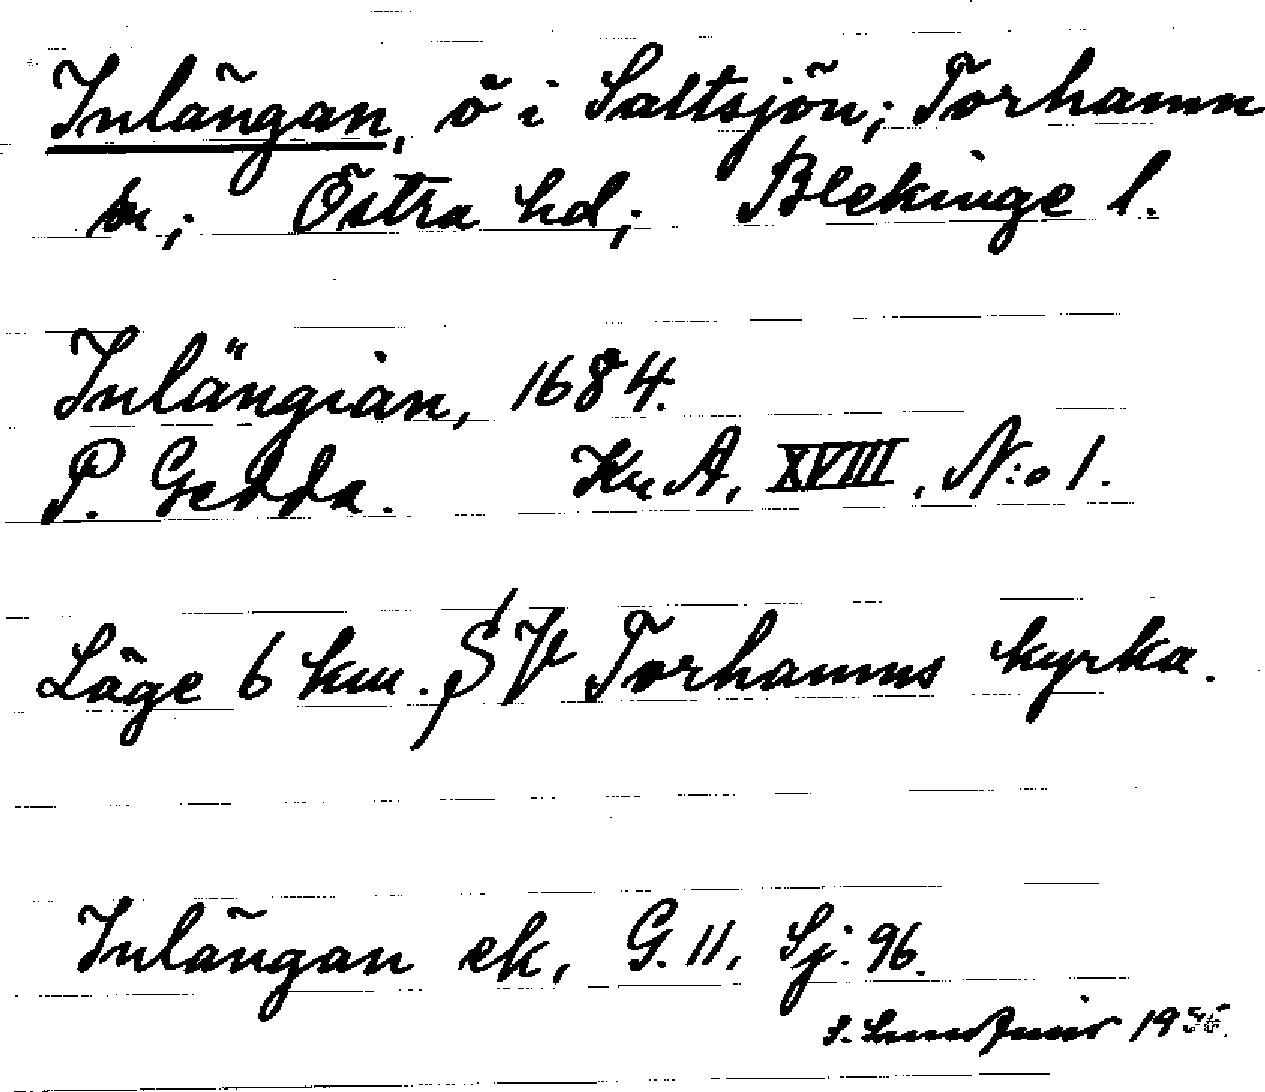 Inlängan, ö i Saltsjön; Torhamn
sn; Östra hd; Blekinge l.
Inlängian, 1684.
P. Gedda. Kr. A, XVIII, N:o 1.
Läge 6 km. SV Torhamns kyrka.
Inlängan ek, G. 11, Sj: 96.
S. 19